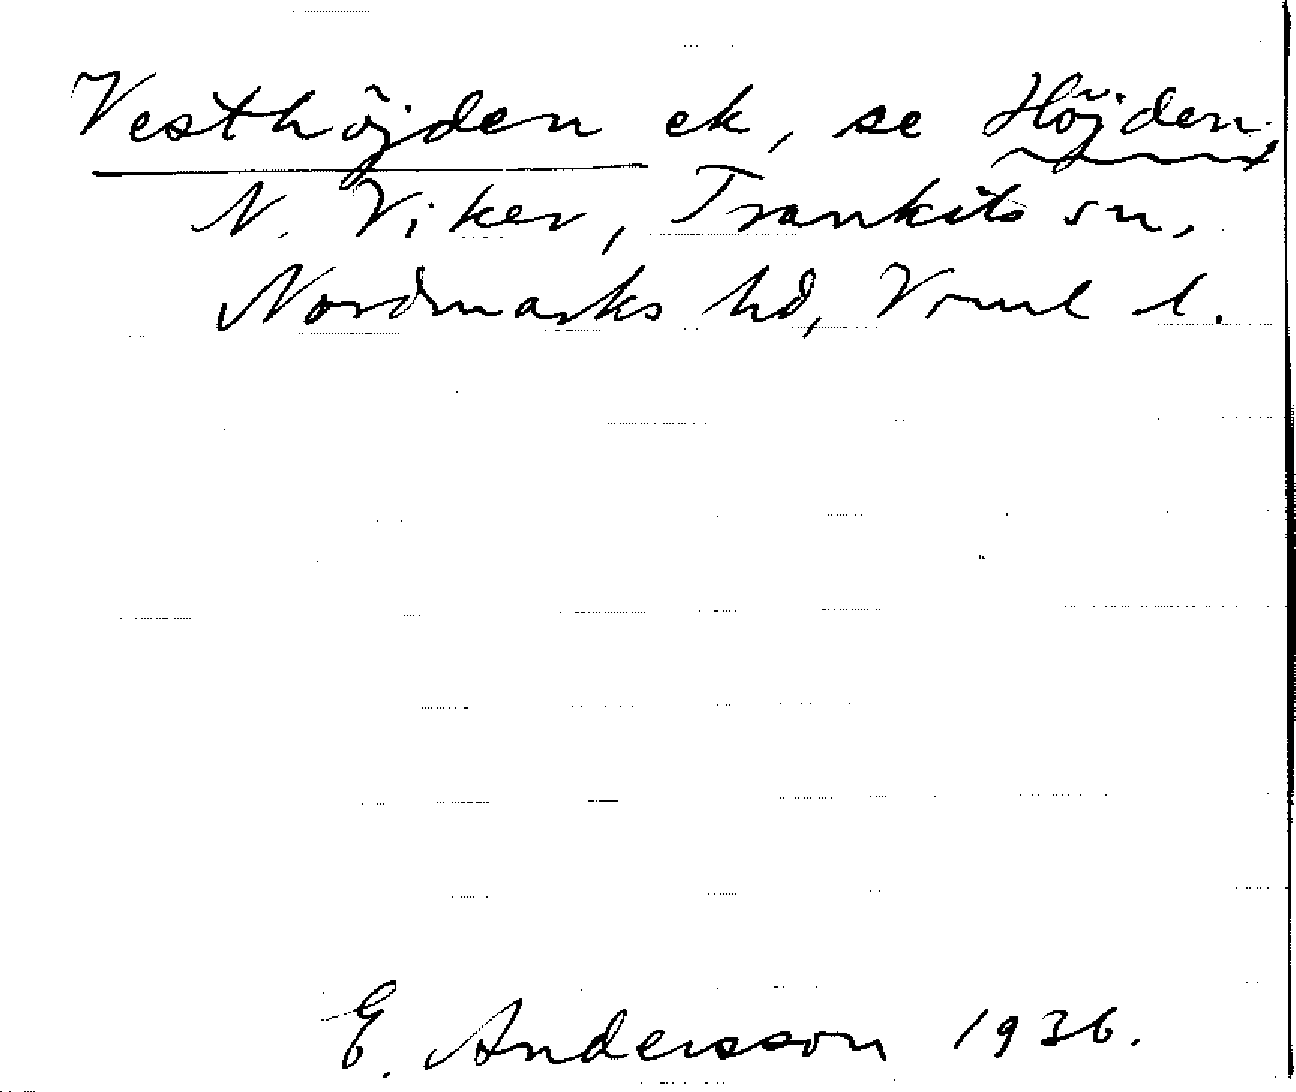 Vesthöjden ek, se Höjden
N. Viker, Trankils sn,
Nordmarks hd, Vrml l.
E. Andersson 1936.